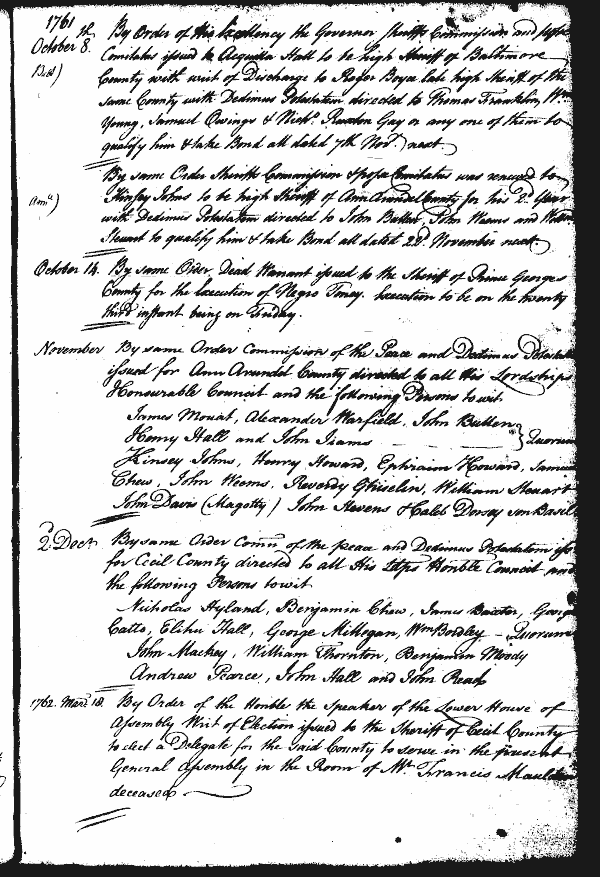 1761
October 8th By Order of His Excellency the Governor Sheriffs Commission and posse
Comitatus issued to Acquila Hall to be high Sheriff of Baltimore
County with writ of Discharge to Roger Boyce late high Sheriff of the
same County with Dedimus Potestatem directed to Thomas Franklin, Wm
Young, Samuel Owings & Nichs. Ruxton Gay or any one of them to
qualify him & take Bond all dated 7th Novr. next
By same Order Sheriffs Commission & posse Comitatus was renewed to
Kinsey Johns to be high Sheriff of Ann Arundel County for his 2d. Year
with Dedimus Potestatem directed to John Bullen, John Weems and William
Steuart to qualify him & take Bond all dated 22d. November next.
October 14. By same Order, Dead Warrant issued to the Sheriff of Prince Georges
County for the Execution of Negro Toney. Execution to be on the twenty
third instant being on Friday.
November By same Order Commission of the Peace and Dedimus Potestatem
issued for Ann Arundel County directed to all His Lordships
Honourable Council and the following Persons to wit.
James Mouat, Alexander Warfield, John Bullen
Henry Hall and John Ijams } Quorum
Kinsey Johns, Henry Howard, Ephraim Howard, Samuel
Chew, John Weems, Reverdy Ghiselin, William Steuart
John Davis (Magotty) John Stevens & Caleb Dorsey son Basil
2d. Do By same Order Comn. of the peace and Dedimus Potestatem iss
for Cecil County directed to all His Ldps Honble Council and
the following Persons to wit
Nicholas Hyland, Benjamin Chew, James Baxter, George
Catto, Elihu Hall, George Milligan, Wm Bordley - Quorum
John Mackey, William Thornton, Benjamin Moody
Andrew Pearce, John Hall and John Read
1762. Mar. 18. By Order of the Honble the Speaker of the Lower House of
Assembly Writ of Election issued to the Sheriff of Cecil County
to elect a Delegate for the said County to serve in the present
General Assembly in the Room of Mr. Francis Mauldin
deceased